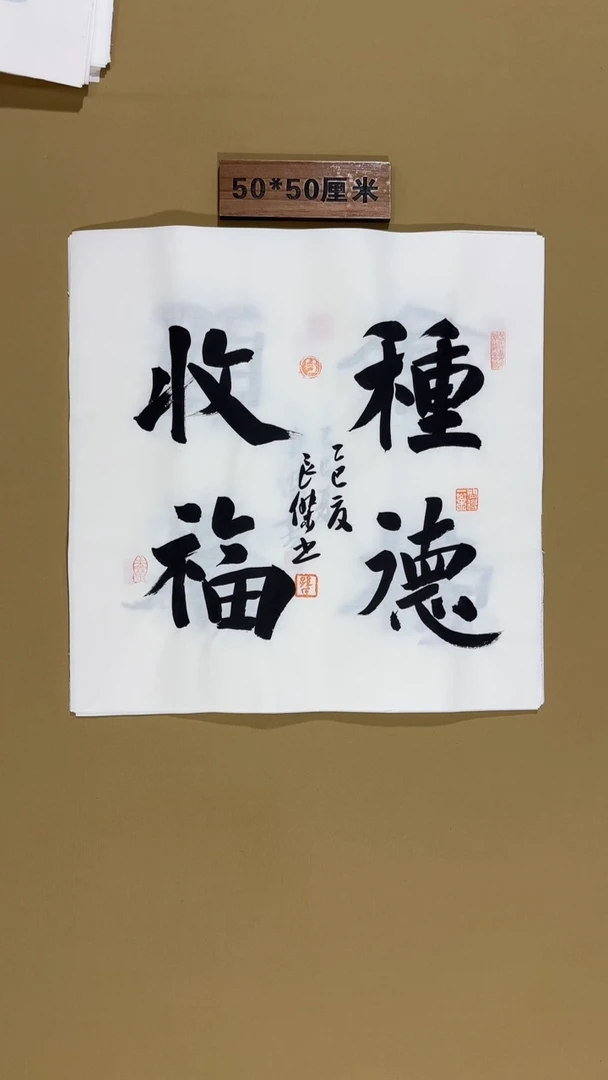 50*50厘米
種德
收福
乙巳夏
良傑書